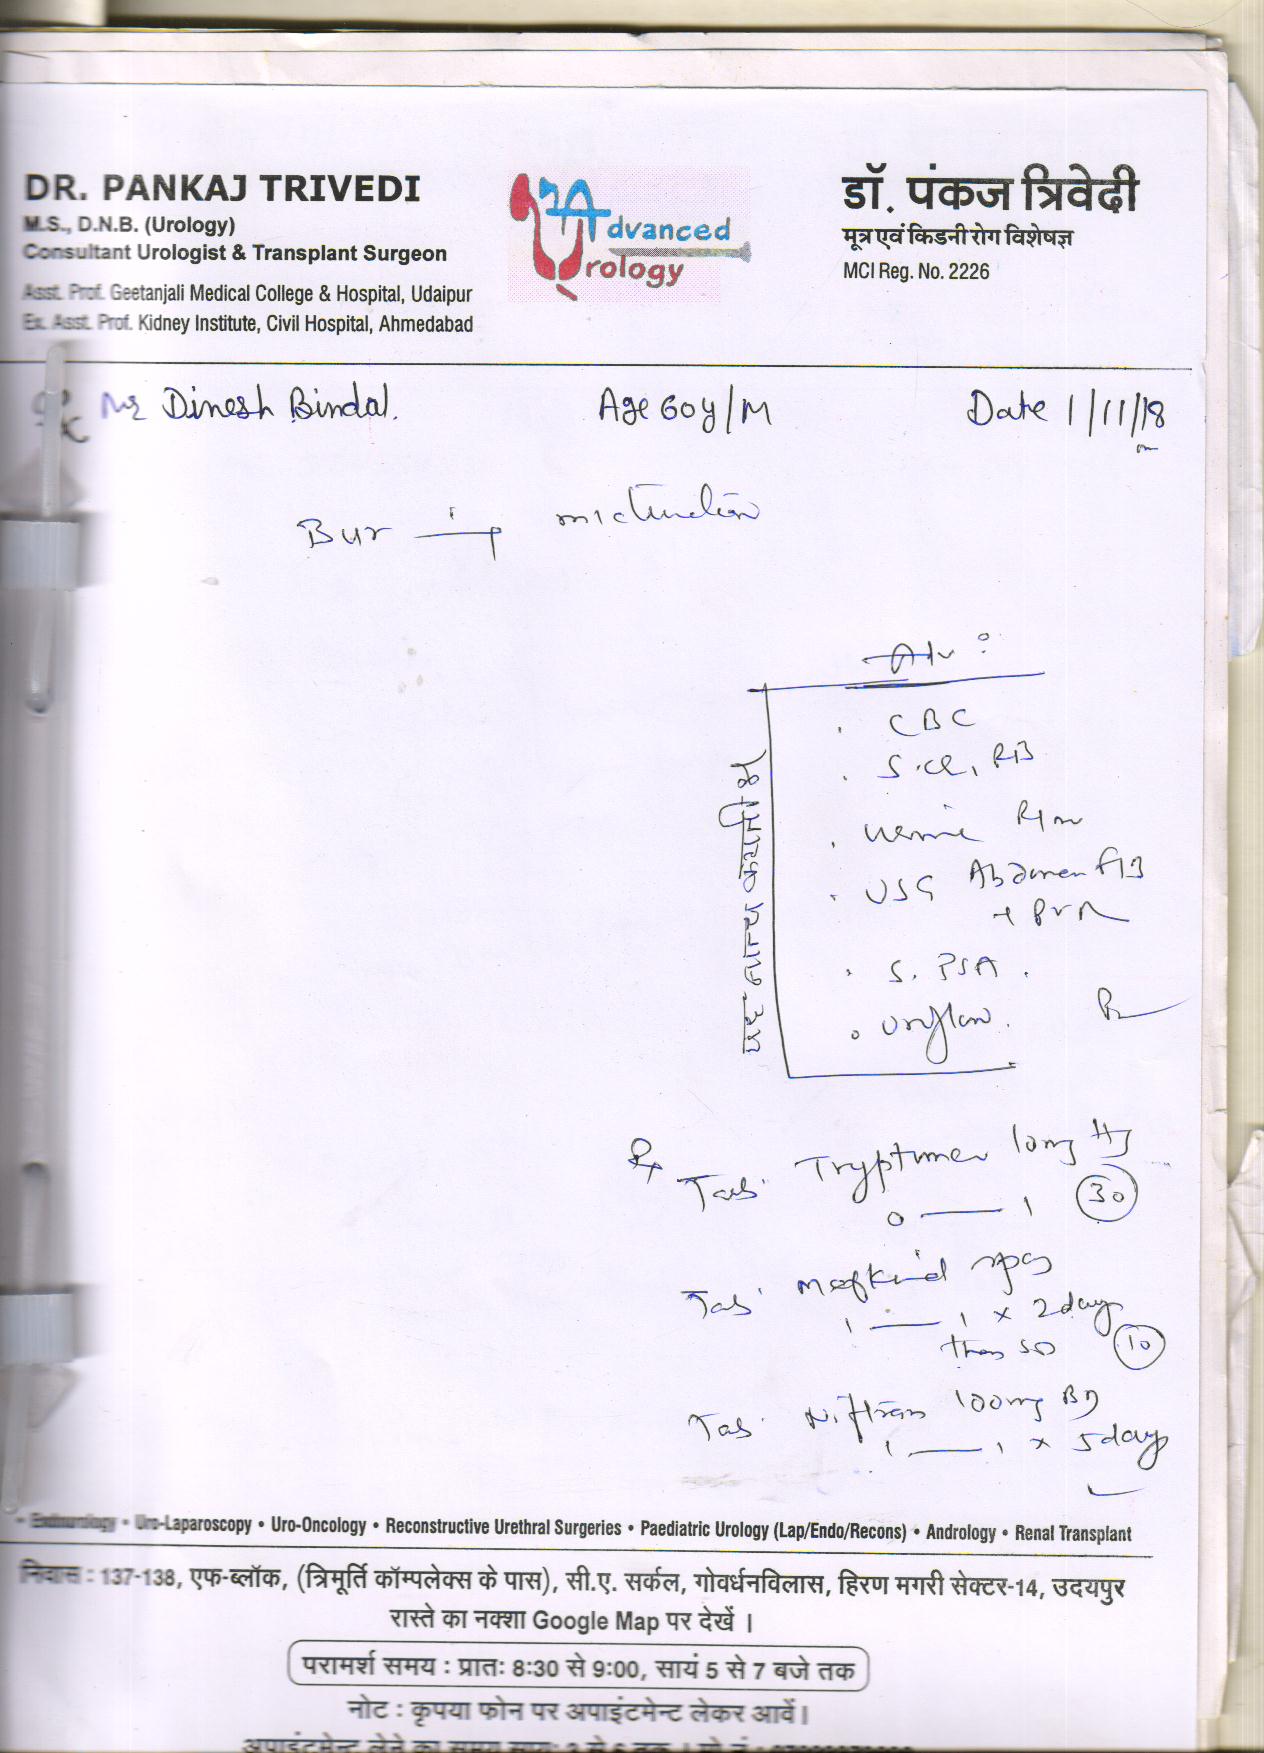 DR. PANKAJ TRIVEDI
M.S., D.N.B. (Urology)
Consultant Urologist & Transplant Surgeon
Asst. Prof. Geetanjali Medical College & Hospital, Udaipur
Ex. Asst. Prof. Kidney Institute, Civil Hospital, Ahmedabad
Advanced
Urology
डॉ. पंकज त्रिवेदी
मूत्र एवं किडनी रोग विशेषज्ञ
MCI Reg. No. 2226
Mr Dinesh Bindal. Age 60y/M Date 1/11/18
Burning micturition
Adv:
. CBC
. S.Cr,
. Urine R/m
. USG Abdomen
+ PVR
. S. PSA.
. Uroflow.
Rx
Tab. Tryptomer 10mg
0 — 1 30
Tab. Mefkind spas
1 — 1 x 2 day
then SOS 10
Tab. Niftran 100mg BD
1 — 1 x 5 day
• Endourology • Uro-Laparoscopy • Uro-Oncology • Reconstructive Urethral Surgeries • Paediatric Urology (Lap/Endo/Recons) • Andrology • Renal Transplant
निवास : 137-138, एफ-ब्लॉक, (त्रिमूर्ति कॉम्पलेक्स के पास), सी.ए. सर्कल, गोवर्धनविलास, हिरण मगरी सेक्टर-14, उदयपुर
रास्ते का नक्शा Google Map पर देखें ।
परामर्श समय : प्रातः 8:30 से 9:00, सायं 5 से 7 बजे तक
नोट : कृपया फोन पर अपाइंटमेन्ट लेकर आवें।
अपाइंटमेन्ट लेने का समय सायं: 3 से 6 तक ।